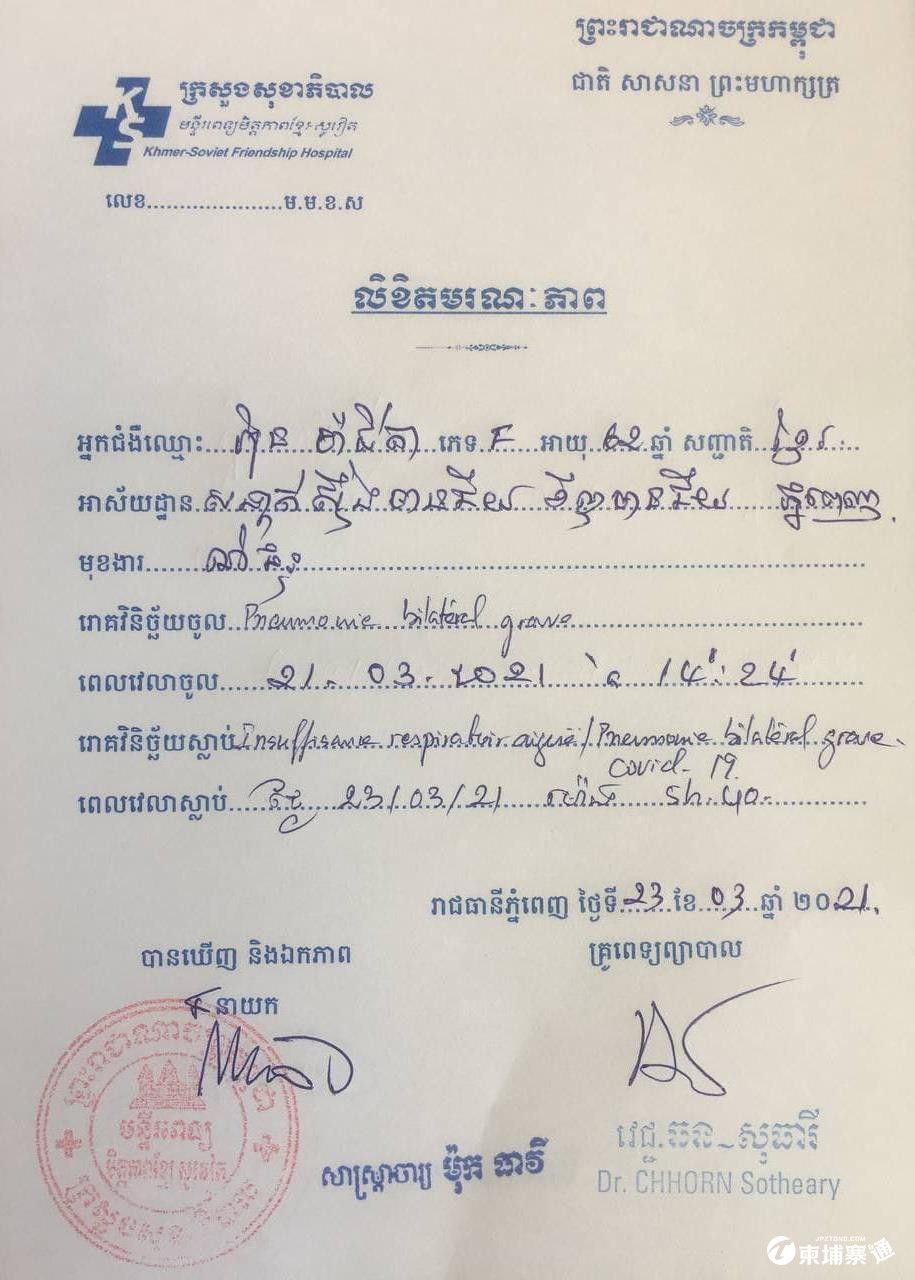 ព្រះរាជាណាចក្រកម្ពុជា
ជាតិ សាសនា ព្រះមហាក្សត្រ
KS
ក្រសួងសុខាភិបាល
មន្ទីរពេទ្យមិត្តភាពខ្មែរ-សូវៀត
Khmer-Soviet Friendship Hospital
លេខ......................ម.ម.ខ.ស
លិខិតមរណៈភាព
អ្នកជំងឺឈ្មោះ ភេទ F អាយុ ឆ្នាំ សញ្ជាតិ ខ្មែរ
អាស័យដ្ឋាន សង្កាត់ស្ទឹងមានជ័យ មានជ័យ ភ្នំពេញ
មុខងារ
រោគវិនិច្ឆ័យចូល Pneumonie bilatéral grave
ពេលវេលាចូល 21-03-2021 14:24
រោគវិនិច្ឆ័យស្លាប់ Insuffisance respiratoir aiguë/Pneumonie bilatéral grave
covid-19
ពេលវេលាស្លាប់ ថ្ងៃ 23/03/21 ម៉ោង 5h.40
រាជធានីភ្នំពេញ ថ្ងៃទី 23 ខែ 03 ឆ្នាំ ២០21
បានឃើញ និងឯកភាព
គ្រូពេទ្យព្យាបាល
នាយក
មន្ទីរពេទ្យ
មិត្តភាពខ្មែរ សូវៀត
សាស្ត្រាចារ្យ ម៉ុក ធាវី
វេជ្ជ.ឆន សុធារី
Dr. CHHORN Sotheary
JPZTONG.COM
柬埔寨通